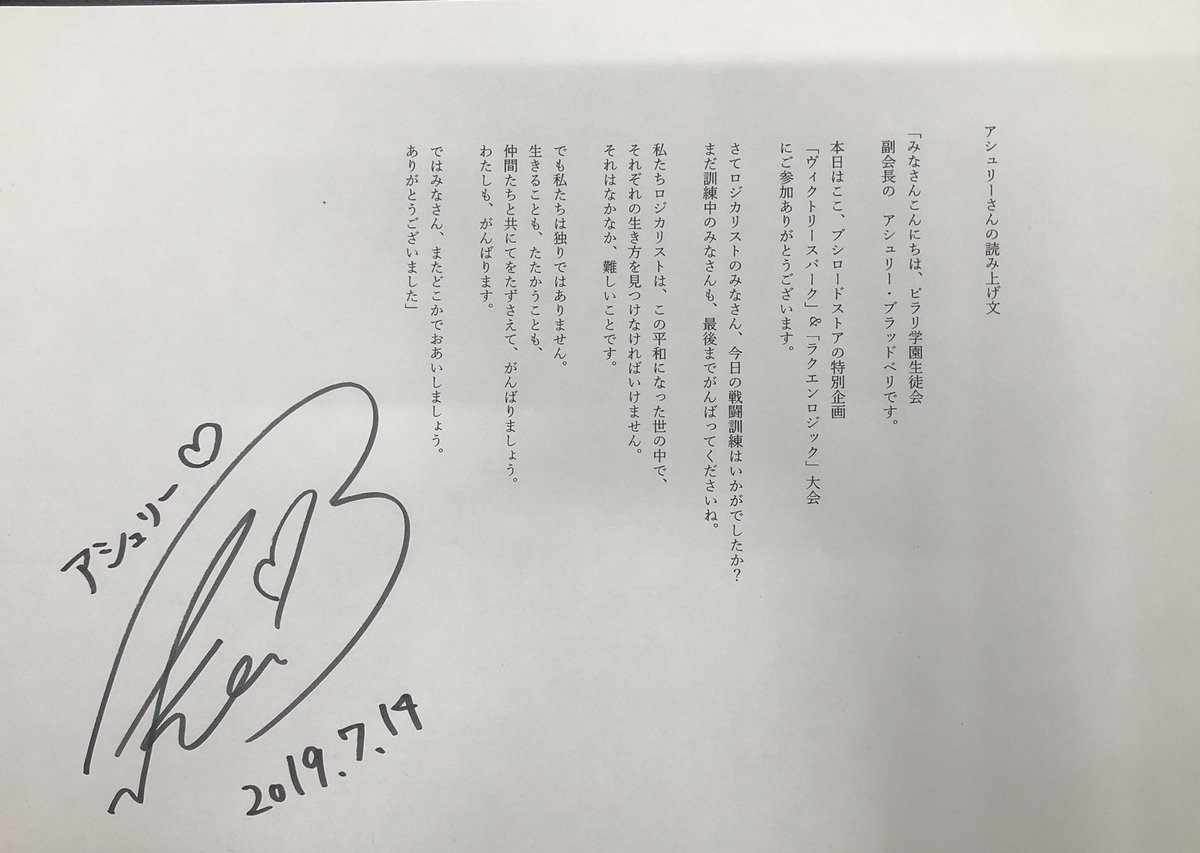 アシュリーさんの読み上げ文
「みなさんこんにちは、ピラリ学園生徒会
副会長の　アシュリー・ブラッドベリです。
本日はここ、ブシロードストアの特別企画
「ヴィクトリースパーク」&「ラクエンロジック」大会
にご参加ありがとうございます。
さてロジカリストのみなさん、今日の戦闘訓練はいかがでしたか？
まだ訓練中のみなさんも、最後までがんばってくださいね。
私たちロジカリストは、この平和になった世の中で、
それぞれの生き方を見つけなければいけません。
それはなかなか、難しいことです。
でも私たちは独りではありません。
生きることも、たたかうことも、
仲間たちと共にてをたずさえて、がんばりましょう。
わたしも、がんばります。
ではみなさん、またどこかでおあいしましょう。
ありがとうございました」
アシュリー♡
2019.7.14